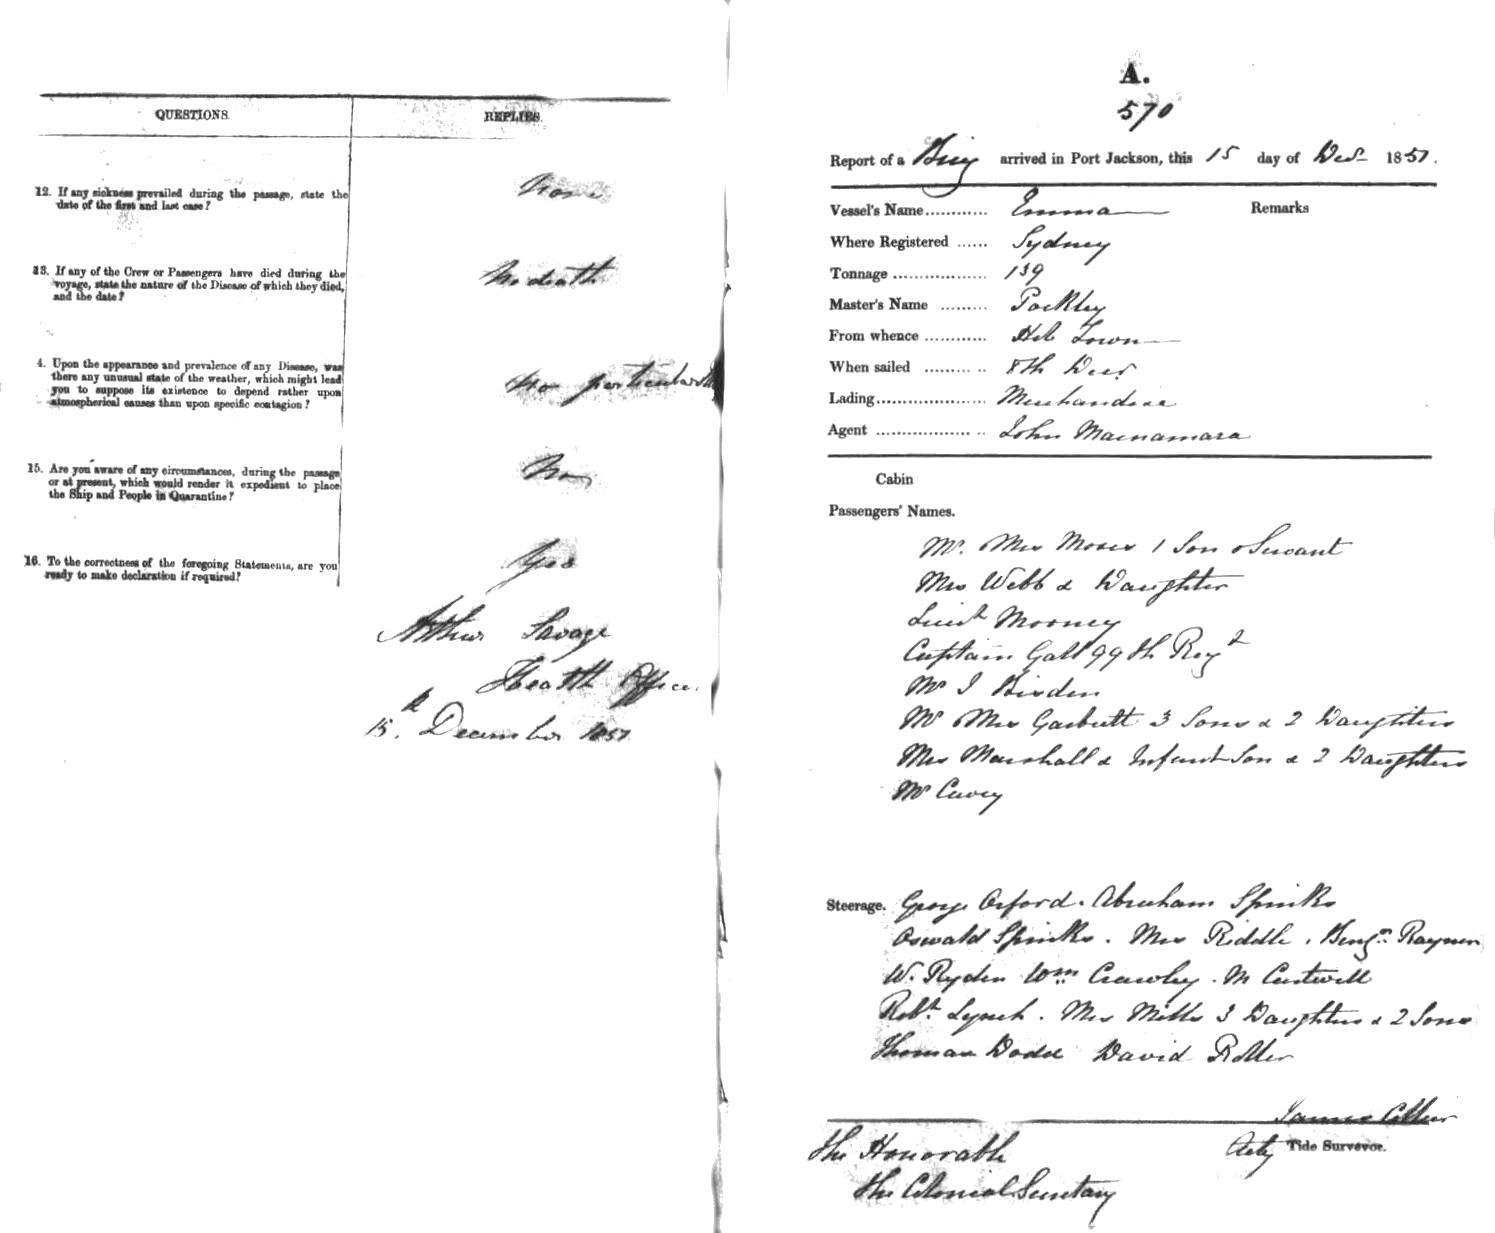 QUESTIONS.
REPLIES.
12. If any sickness prevailed during the passage, state the
date of the first and last case?
None
13. If any of the Crew or Passengers have died during the
voyage, state the nature of the Disease of which they died,
and the date?
No death
4. Upon the appearance and prevalence of any Disease, was
there any unusual state of the weather, which might lead
you to suppose its existence to depend rather upon
atmospherical causes than upon specific contagion?
No particular
15. Are you aware of any circumstances, during the passage
or at present, which would render it expedient to place
the Ship and People in Quarantine?
No
16. To the correctness of the foregoing Statements, are you
ready to make declaration if required?
Yes
Arthur Savage
Health Officer
15th December 1851
A.
570
Report of a Brig arrived in Port Jackson, this 15 day of Decr 1851.
Vessel's Name............ Emma
Remarks
Where Registered ...... Sydney
Tonnage .................. 139
Master's Name ......... Pockley
From whence ............ Hob Town
When sailed ............ 8th Decr
Lading..................... Merchandise
Agent ..................... John Macnamara
Cabin
Passengers' Names.
Mr. Mrs Moses 1 Son & Servant
Mrs Webb & Daughter
Lieut Mooney
Captain Gall 99th Regt
Mr J
Mr Mrs Garbutt 3 Sons & 2 Daughters
Mrs Marshall & Infant Son & 2 Daughters
Mr
Steerage. George Orford. Abraham Spinks
Oswald Spinks. Mrs Riddle. Benjn Rayner
W. Ryden Wm Crawley. M
Robt Lynch. Mrs Mills 3 Daughters & 2 Sons
Thomas Dodd David
James
Actg Tide Surveyor.
The Honorable
The Colonial Secretary